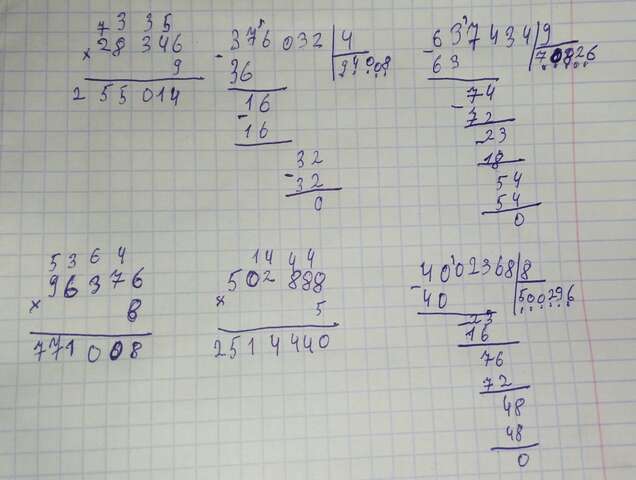 7 3 3 5
× 28 346
9
2 55 014
376 032 | 4
- 36 | 94008
16
- 16
32
- 32
0
637434 | 9
- 63 | 70826
74
- 72
23
- 18
54
54
0
5 3 6 4
96376
× 8
771008
1 4 4 4
502 888
× 5
2514440
4002368 | 8
- 40 | 500296
23
16
76
72
48
48
0